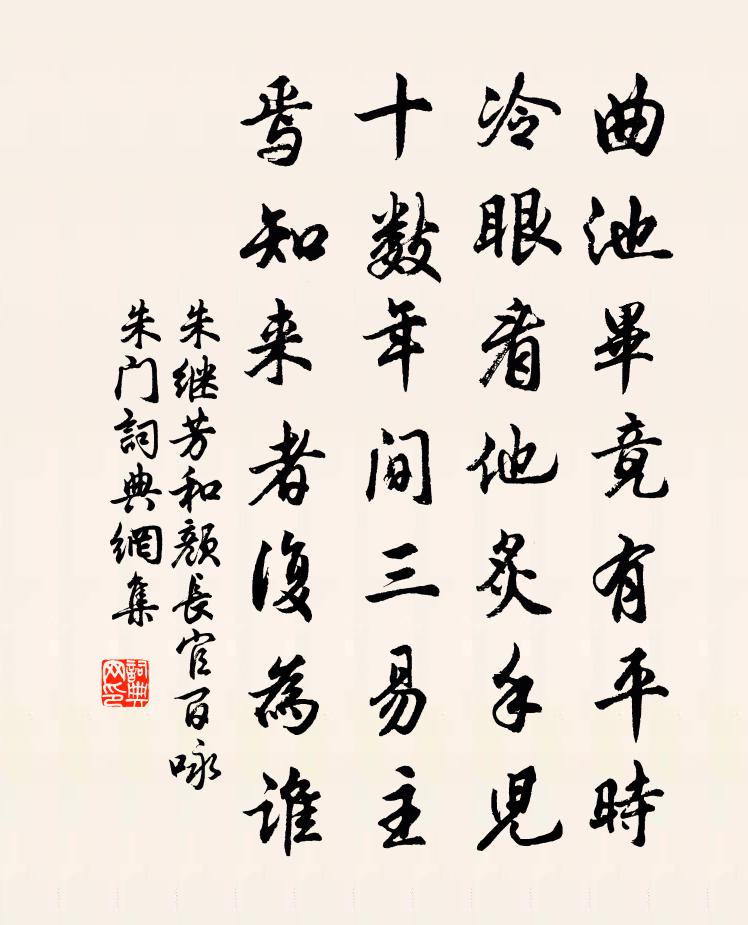 曲池畢竟有平時
冷眼看他炙手兒
十數年间三易主
焉知来者復為誰
朱继芳和顏長官百咏
朱门詞典網集
詞典网印